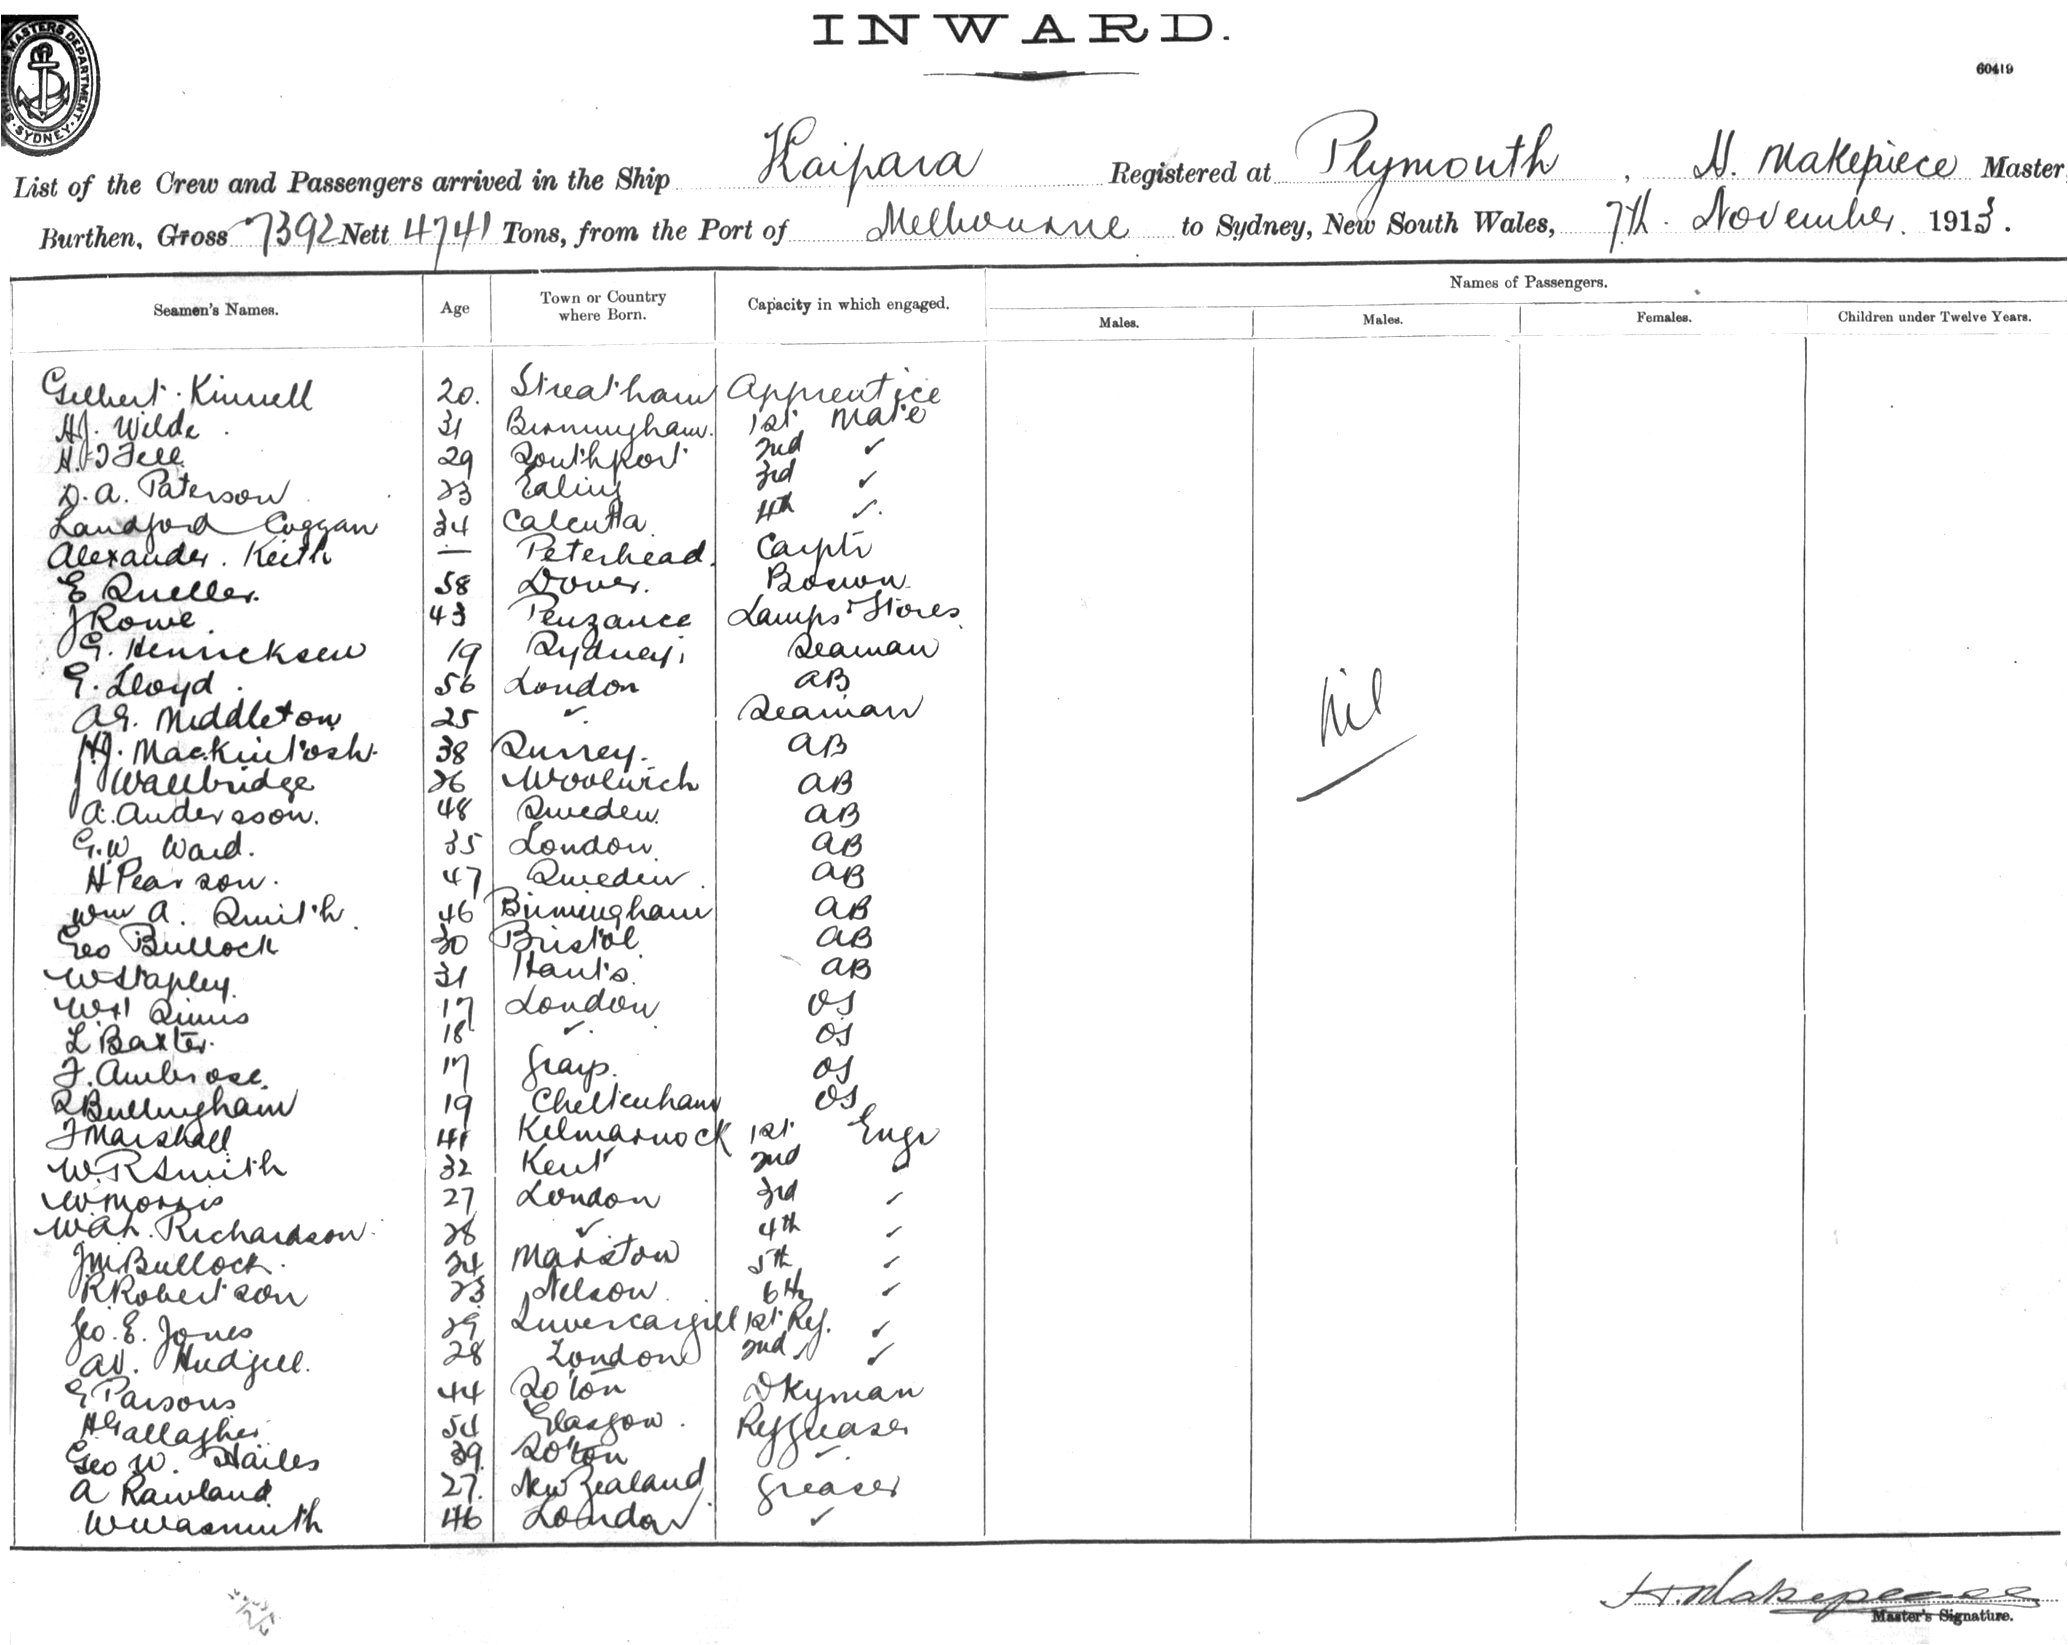 INWARD.
SHIPPING MASTERS DEPARTMENT. SYDNEY.
60419
List of the Crew and Passengers arrived in the Ship Kaipara Registered at Plymouth, H. Makepiece Master
Burthen, Gross 7392 Nett 4741 Tons, from the Port of Melbourne to Sydney, New South Wales, 7th. November. 1913.
Seamen's Names. Age Town or Country where Born. Capacity in which engaged. Names of Passengers.
Males. Males. Females. Children under Twelve Years.
Gilbert Kinnell 20. Streatham Apprentice
H.J. Wilde 31 Birmingham. 1st Mate
H. T Fell 29 Southport 2nd ✓
D. A. Paterson 23 Ealing 3rd ✓
Landford Coggan 34 Calcutta 4th ✓
Alexander. Keith — Peterhead. Carptr
E Sueller. 58 Dover. Boswn
J Rowe 43 Penzance Lamps & Stores
G. Henricksen 19 Sydney Seaman
E. Lloyd 56 London AB
A.G. Middleton 25 ✓ Seaman
H.J. Mackintosh 38 Surrey. AB
J Wallbridge 26 Woolwich AB
A. Andersson. 48 Sweden. AB
G.W Ward. 35 London AB
H Pearson. 47 Sweden. AB
Wm A. Smith 46 Birmingham AB
Geo Bullock 30 Bristol AB
W Stapley 31 Hants. AB
W H Simis 17 London OS
L Baxter. 18 ✓ OS
F. Ambrose. 17 Grays. OS
R Bullingham 19 Cheltenham OS
J Marshall 41 Kilmarnock 1st Engr
W. R Smith 32 Kent 2nd ✓
W. Morris 27 London 3rd ✓
W. A. L. Richardson 28 ✓ 4th ✓
J M Bullock. 24 Marston 5th ✓
R Robertson 23 Nelson 6th ✓
Geo. E. Jones 29 Invercargill 1st Ref. ✓
A.V. Hudgell. 28 London 2nd ✓ ✓
E Parsons 44 So'ton Dkyman
H Gallagher 54 Glasgow. Ref Greaser
Geo W. Hailes 39 So'ton ✓
A Rawland 27. New Zealand Greaser
W Wasmuth 46 London ✓
Nil
H. Makepeace
Master's Signature.